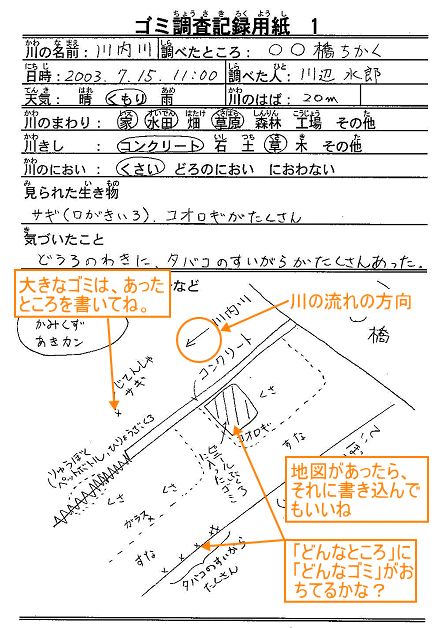 ゴミ調査記録用紙 1
川の名前：川内川 調べたところ：〇〇橋ちかく
日時：2003. 7. 15. 11:00 調べた人：川辺 水郎
天気： 晴 くもり 雨 川のはば：20m
川のまわり： 家 水田 畑 草原 森林 工場 その他
川きし： コンクリート 石 土 草 木 その他
川のにおい： くさい どろのにおい におわない
見られた生き物
サギ(口がきいろ)、コオロギがたくさん
気づいたこと
どうろのわきに、タバコのすいがらがたくさんあった。
など
大きなゴミは、あった
ところを書いてね。
川の流れの方向
かみくず
あきカン
川内川
橋
コンクリート
じてんしゃ
サギ
くさ
コオロギ
りゅうぼく
ペットボトル、ひりょうぶくろ
ビニールに入ったゴミ
すな
くさ
くさ
カラス
すな
タバコのすいがら
たくさん
地図があったら、
それに書き込んで
もいいね
「どんなところ」に
「どんなゴミ」がお
ちてるかな？